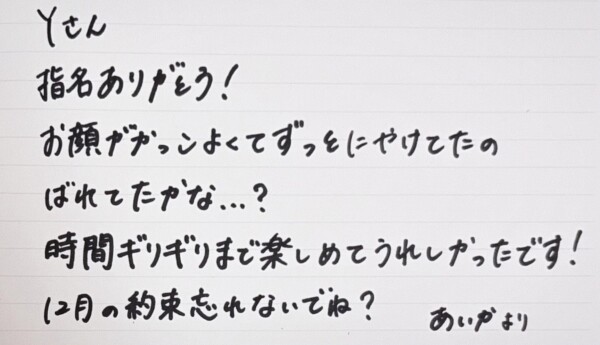 Yさん
指名ありがとう！
お顔がかっこよくてずっとにやけてたの
ばれてたかな...？
時間ギリギリまで楽しめてうれしかったです！
12月の約束忘れないでね？
あいかより